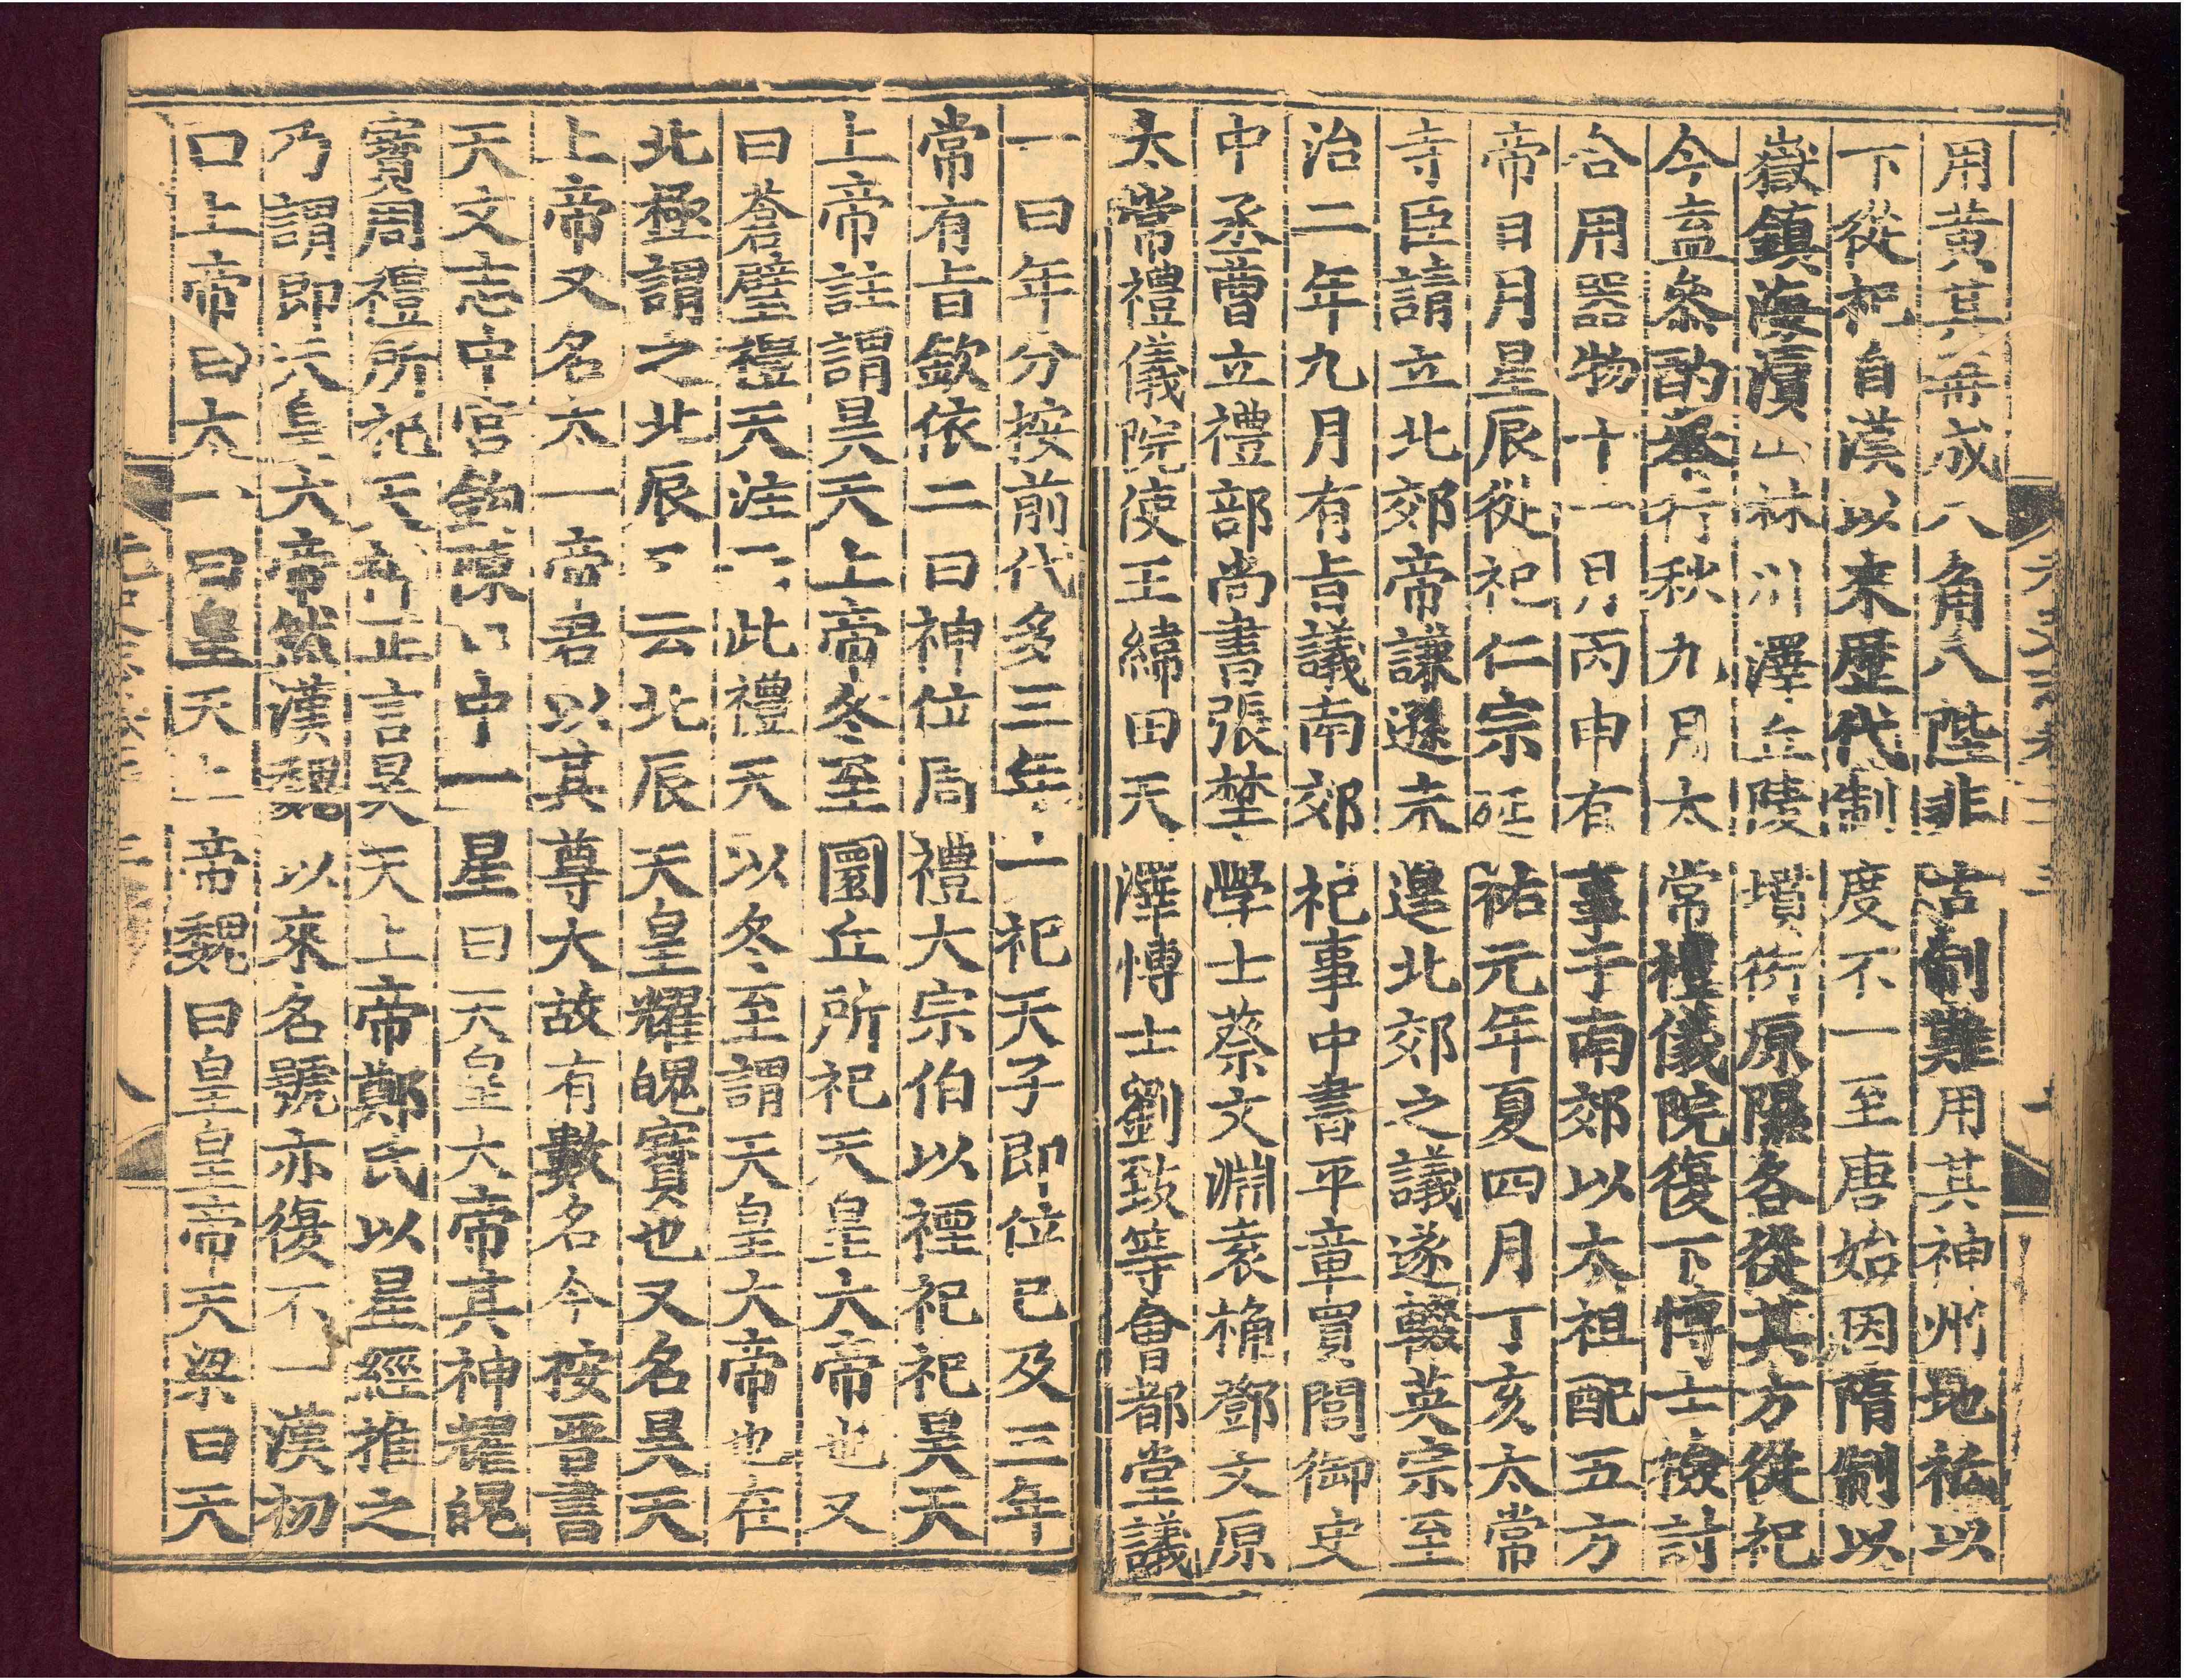 用黃其再成八角八陛非古制難用其神州地祇以
下從祀自漢以來歷代制度不一至唐始因隋制以
嶽鎮海瀆山林川澤丘陵墳衍原隰各從其方從祀
今盍參酌舉行秋九月太常禮儀院復下博士檢討
合用器物十一月丙申有事于南郊以太祖配五方
帝日月星辰從祀仁宗延祐元年夏四月丁亥太常
寺臣請立北郊帝謙遜未遑北郊之議遂輟英宗至
治二年九月有旨議南郊祀事中書平章買閭御史
中丞曹立禮部尚書張埜學士蔡文淵袁桷鄧文原
太常禮儀院使王緯田天澤博士劉致等會都堂議
一曰年分按前代多三年一祀天子即位已及三年
常有旨欽依二曰神位周禮大宗伯以禋祀祀昊天
上帝註謂昊天上帝冬至圜丘所祀天皇大帝也又
曰蒼璧禮天注云此禮天以冬至謂天皇大帝也在
北極謂之北辰又云北辰天皇耀魄寶也又名昊天
上帝又名太一帝君以其尊大故有數名今按晉書
天文志中宮鉤陳口中一星曰天皇大帝其神耀魄
寶周禮所祀天帝正言昊天上帝鄭氏以星經推之
乃謂即天皇大帝然漢魏以來名號亦復不一漢初
曰上帝曰太一曰皇天上帝魏曰皇皇帝天梁曰天